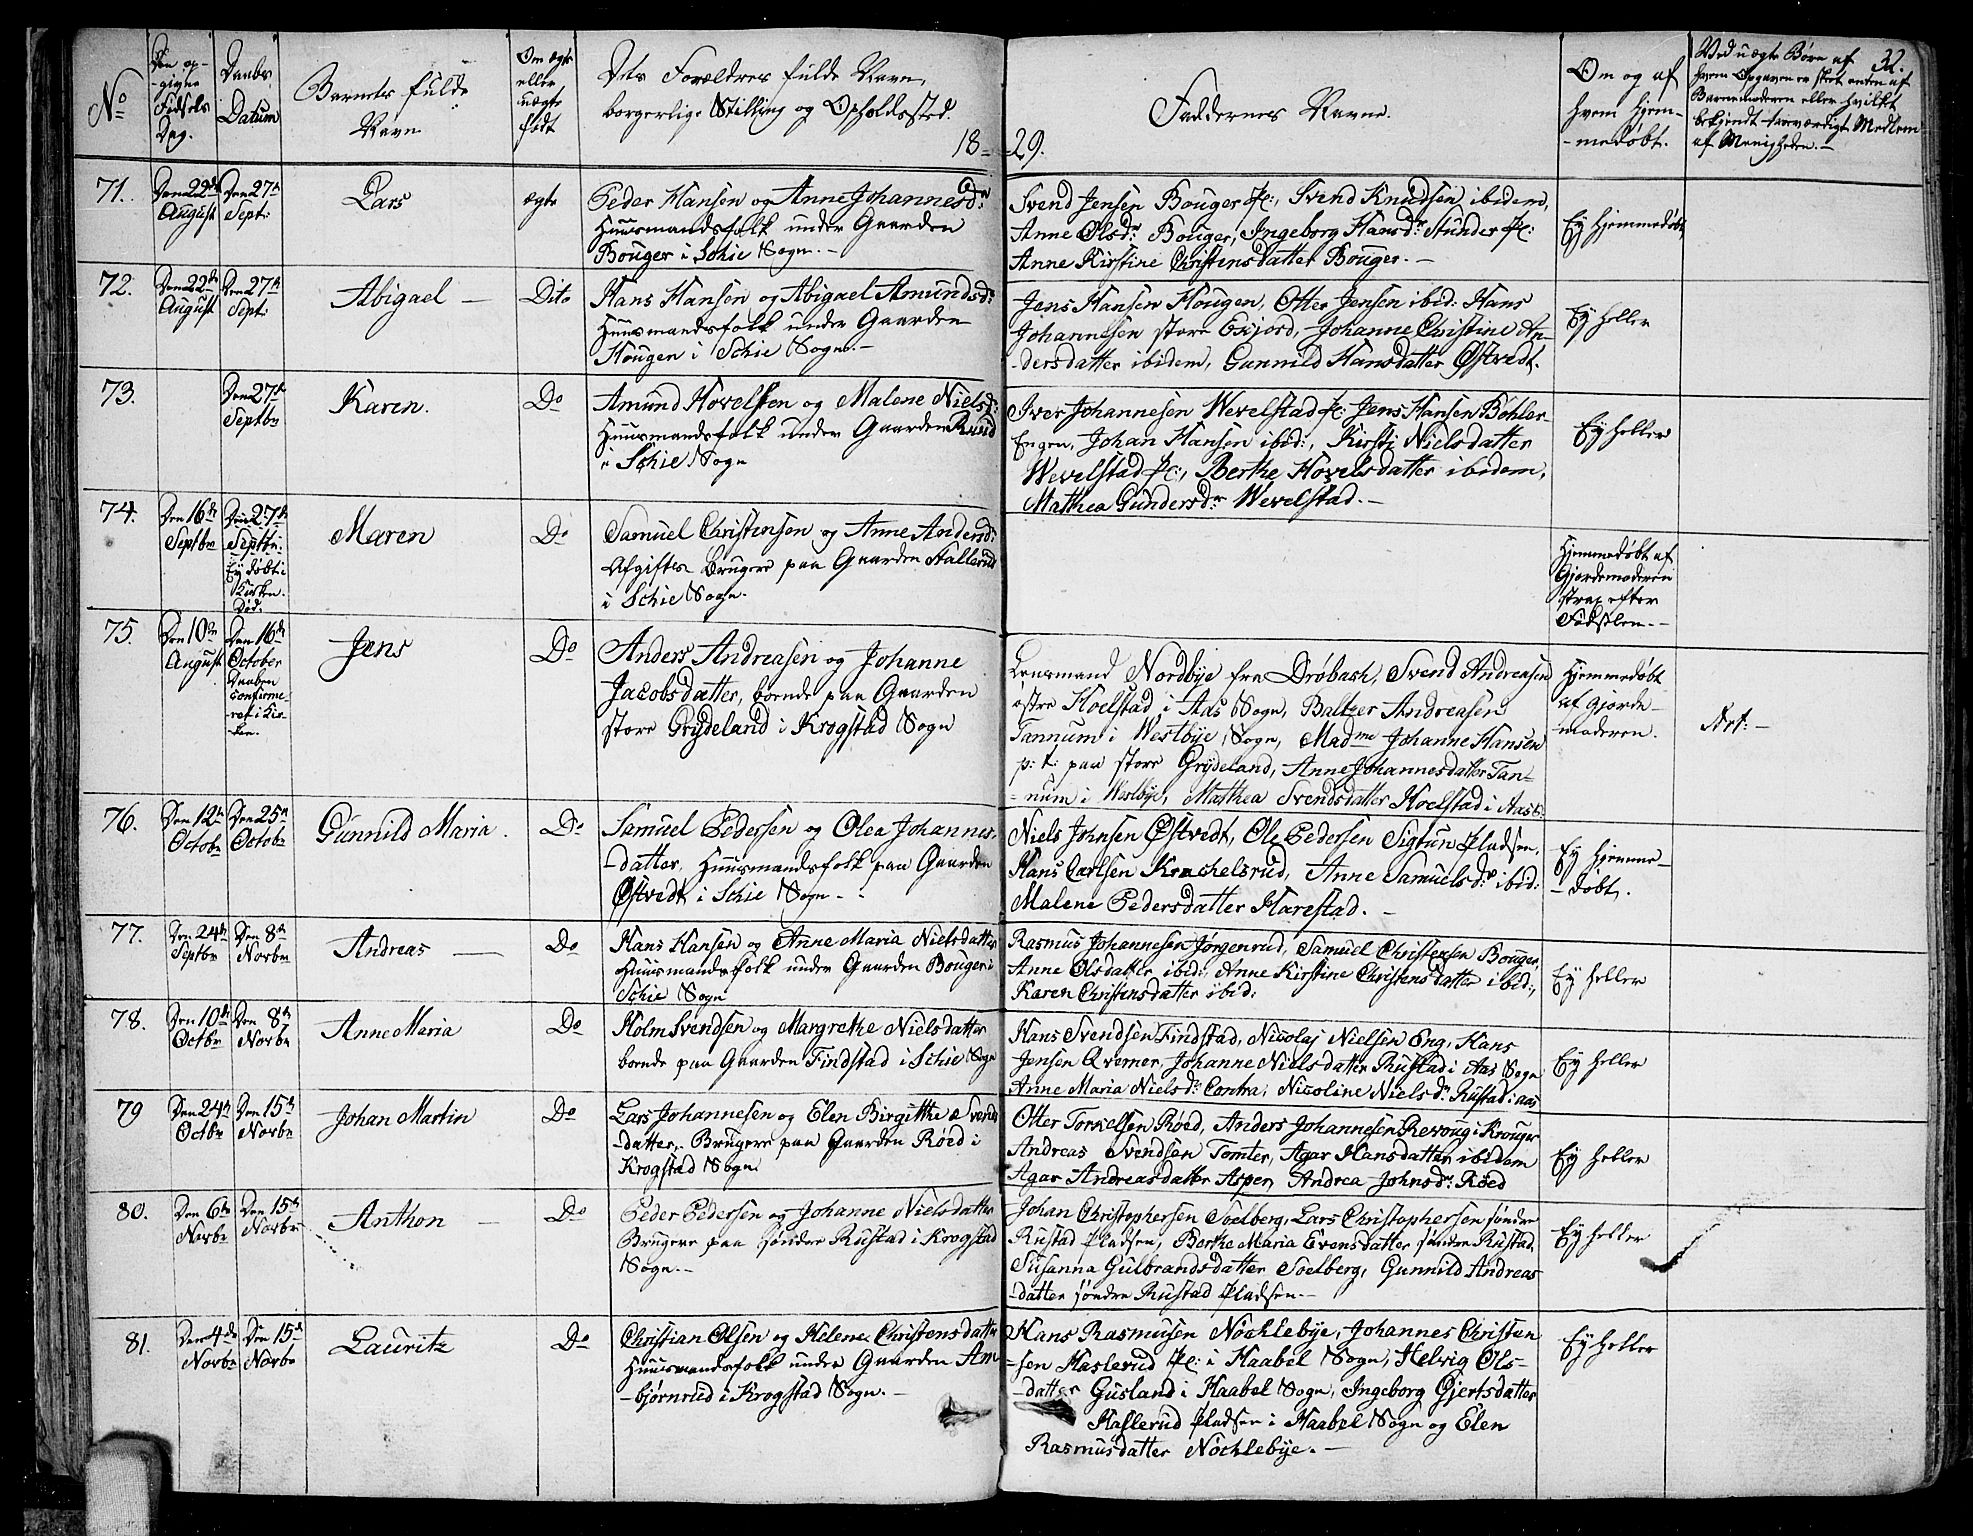 32.
No
Den op-
-givne
Fødsels
Dag.
Daabs
Datum
Barnets fulde
Navn
Om ægte
eller
uægte
født
Dets Forældres fulde Navn,
borgerlige Stilling og Opholdssted.
18-29.
Faddernes Navne.
Om og af
hvem hjem-
-medøbt.
Ved uægte Børn af
hvem Opgaven er skeet enten af
Barnemoderen eller hvilket
bekjendt troværdigt Medlem
af Menigheden.-
71.
Den 22de
August
Den 27de
Sept:
Lars
ægte
Peder Hansen og Anne Johannesdr
Huusmandsfolk under Gaarden
Bouger i Schie Sogn.-
Svend Jensen Bouger Pl:, Svend Knudsen ibidem,
Anne Olsdr Bouger, Ingeborg Hansdr Stunder Pl:
Anne Kirstine Christensdatter Bouger.-
Ey Hjemmedøbt
72.
Den 22de
August
Den 27de
Sept:
Abigael -
Dito
Hans Hansen og Abigael Amundsdr
Huusmandsfolk under Gaarden
Hougen i Schie Sogn.-
Jens Hansen Hougen, Otter Jensen ibid: Hans
Johannesen store Eskjord, Johanne Christine An-
-dersdatter ibidem, Gunnild Hansdatter Østvedt.
Ey heller
73.
Den 27de
Septbr
Karen.
Do
Amund Hovelsen og Malene Nielsdr
Huusmandsfolk under Gaarden Ruud
i Schie Sogn
Iver Johannesen Wevelstad Pl: Jens Hansen Bøhler-
Engen, Johan Hansen ibid:, Kirsti Nielsdatter
Wevelstad Pl:, Berthe Hovelsdatter ibidem,
Mathea Gundersdr Wevelstad.-
Ey heller
74.
Den 16de
Septbr
Den 27de
Septb:
Ey døbt i
Kirken.
Død.
Maren
Do
Samuel Christensen og Anne Andersdr
Afgifts Brugere paa Gaarden Hallerud
i Schie Sogn.
Hjemmedøbt af
Gjordemoderen
strax efter
Fødselen.-
75.
Den 10de
August
Den 16de
October
Daaben
confirme-
-ret i Kir-
-ken.
Jens
Do
Anders Andreasen og Johanne
Jacobsdatter, boende paa Gaarden
store Grydeland i Krogstad Sogn
Lensmand Nordbye fra Drøbach, Svend Andreasen
østre Hoelstad i Aas Sogn, Baltzer Andreasen
Tannum i Westbye Sogn, Madme Johanne Hansen
p: t: paa store Grydeland, Anne Johannesdatter Tan-
-num i Westbye, Mathea Svendsdatter Hoelstad i Aas S:
Hjemmedøbt
af Gjorde-
moderen.
Not:-
76.
Den 12te
Octobr
Den 25de
Octobr
Gunnild Maria.
Do
Samuel Pedersen og Olea Johannes-
-datter, Huusmandsfolk paa Gaarden
Østvedt i Schie Sogn.-
Niels Johnsen Østvedt, Ole Pedersen Sigrun Pladsen,
Hans Carlsen Krachelsrud, Anne Samuelsdr ibid:
Malene Pedersdatter Harestad.-
Ey hjemme-
-døbt.
77.
Den 24de
Septbr
Den 8de
Novbr
Andreas -
Do
Hans Hansen og Anne Maria Nielsdatter
Huusmandsfolk under Gaarden Bouger i
Schie Sogn
Rasmus Johannesen Jørgenrud, Samuel Christensen Bouger,
Anne Olsdatter ibid: Anne Kirstine Christensdatter ibid:,
Karen Christensdatter ibid:
Ey heller
78.
Den 10de
Octbr
Den 8de
Novbr
Anne Maria
Do
Holm Svendsen og Margrethe Nielsdatter
boende paa Gaarden Findstad i Schie Sogn
Hans Svendsen Findstad, Nicolaj Nielsen Eng, Hans
Jensen Qverner, Johanne Nielsdatter Rustad i Aas Sogn
Anne Maria Nielsdr Contra, Nicoline Nielsdr Rustad i aas
Ey heller
79
Den 24de
Octbr
Den 15de
Novbr
Johan Martin
Do
Lars Johannesen og Elen Birgitthe Svends
-datter, Brugere paa Gaarden Røed i
Krogstad Sogn
Otter Torkelsen Røed, Anders Johannesen Revoug i Krouger
Andreas Svendsen Tomter, Agar Hansdatter ibidem
Agar Andreasdatter Aspen, Andrea Johnsdr Røed
Ey heller
80.
Den 6te
Novbr
Den 15de
Novbr
Anthon -
Do
Peder Pedersen og Johanne Nielsdatter
Brugere paa søndre Rustad i Krogstad
Sogn.-
Johan Christophersen Soelberg, Lars Christophersen søndre
Rustad Pladsen, Berthe Maria Evensdatter søndre Rustad,
Susanna Gulbrandsdatter Soelberg, Gunnild Andreas
-datter søndre Rustad Pladsen.-
Ey heller
81.
Den 4de
Novbr
Den 15de
Novbr
Lauritz
Do
Christian Olsen og Helene Christensdatter
Huusmandsfolk under Gaarden Am-
-bjørnrud i Krogstad Sogn.-
Hans Rasmusen Nøchlebye, Johannes Christen
-sen Haslerud Pl: i Haabel Sogn, Helvig Ols-
-datter Gusland i Haabel Sogn, Ingeborg Gjertsdatter
Haslerud Pladsen i Haabel Sogn og Elen
Rasmusdatter Nøchlebye.-
Ey heller